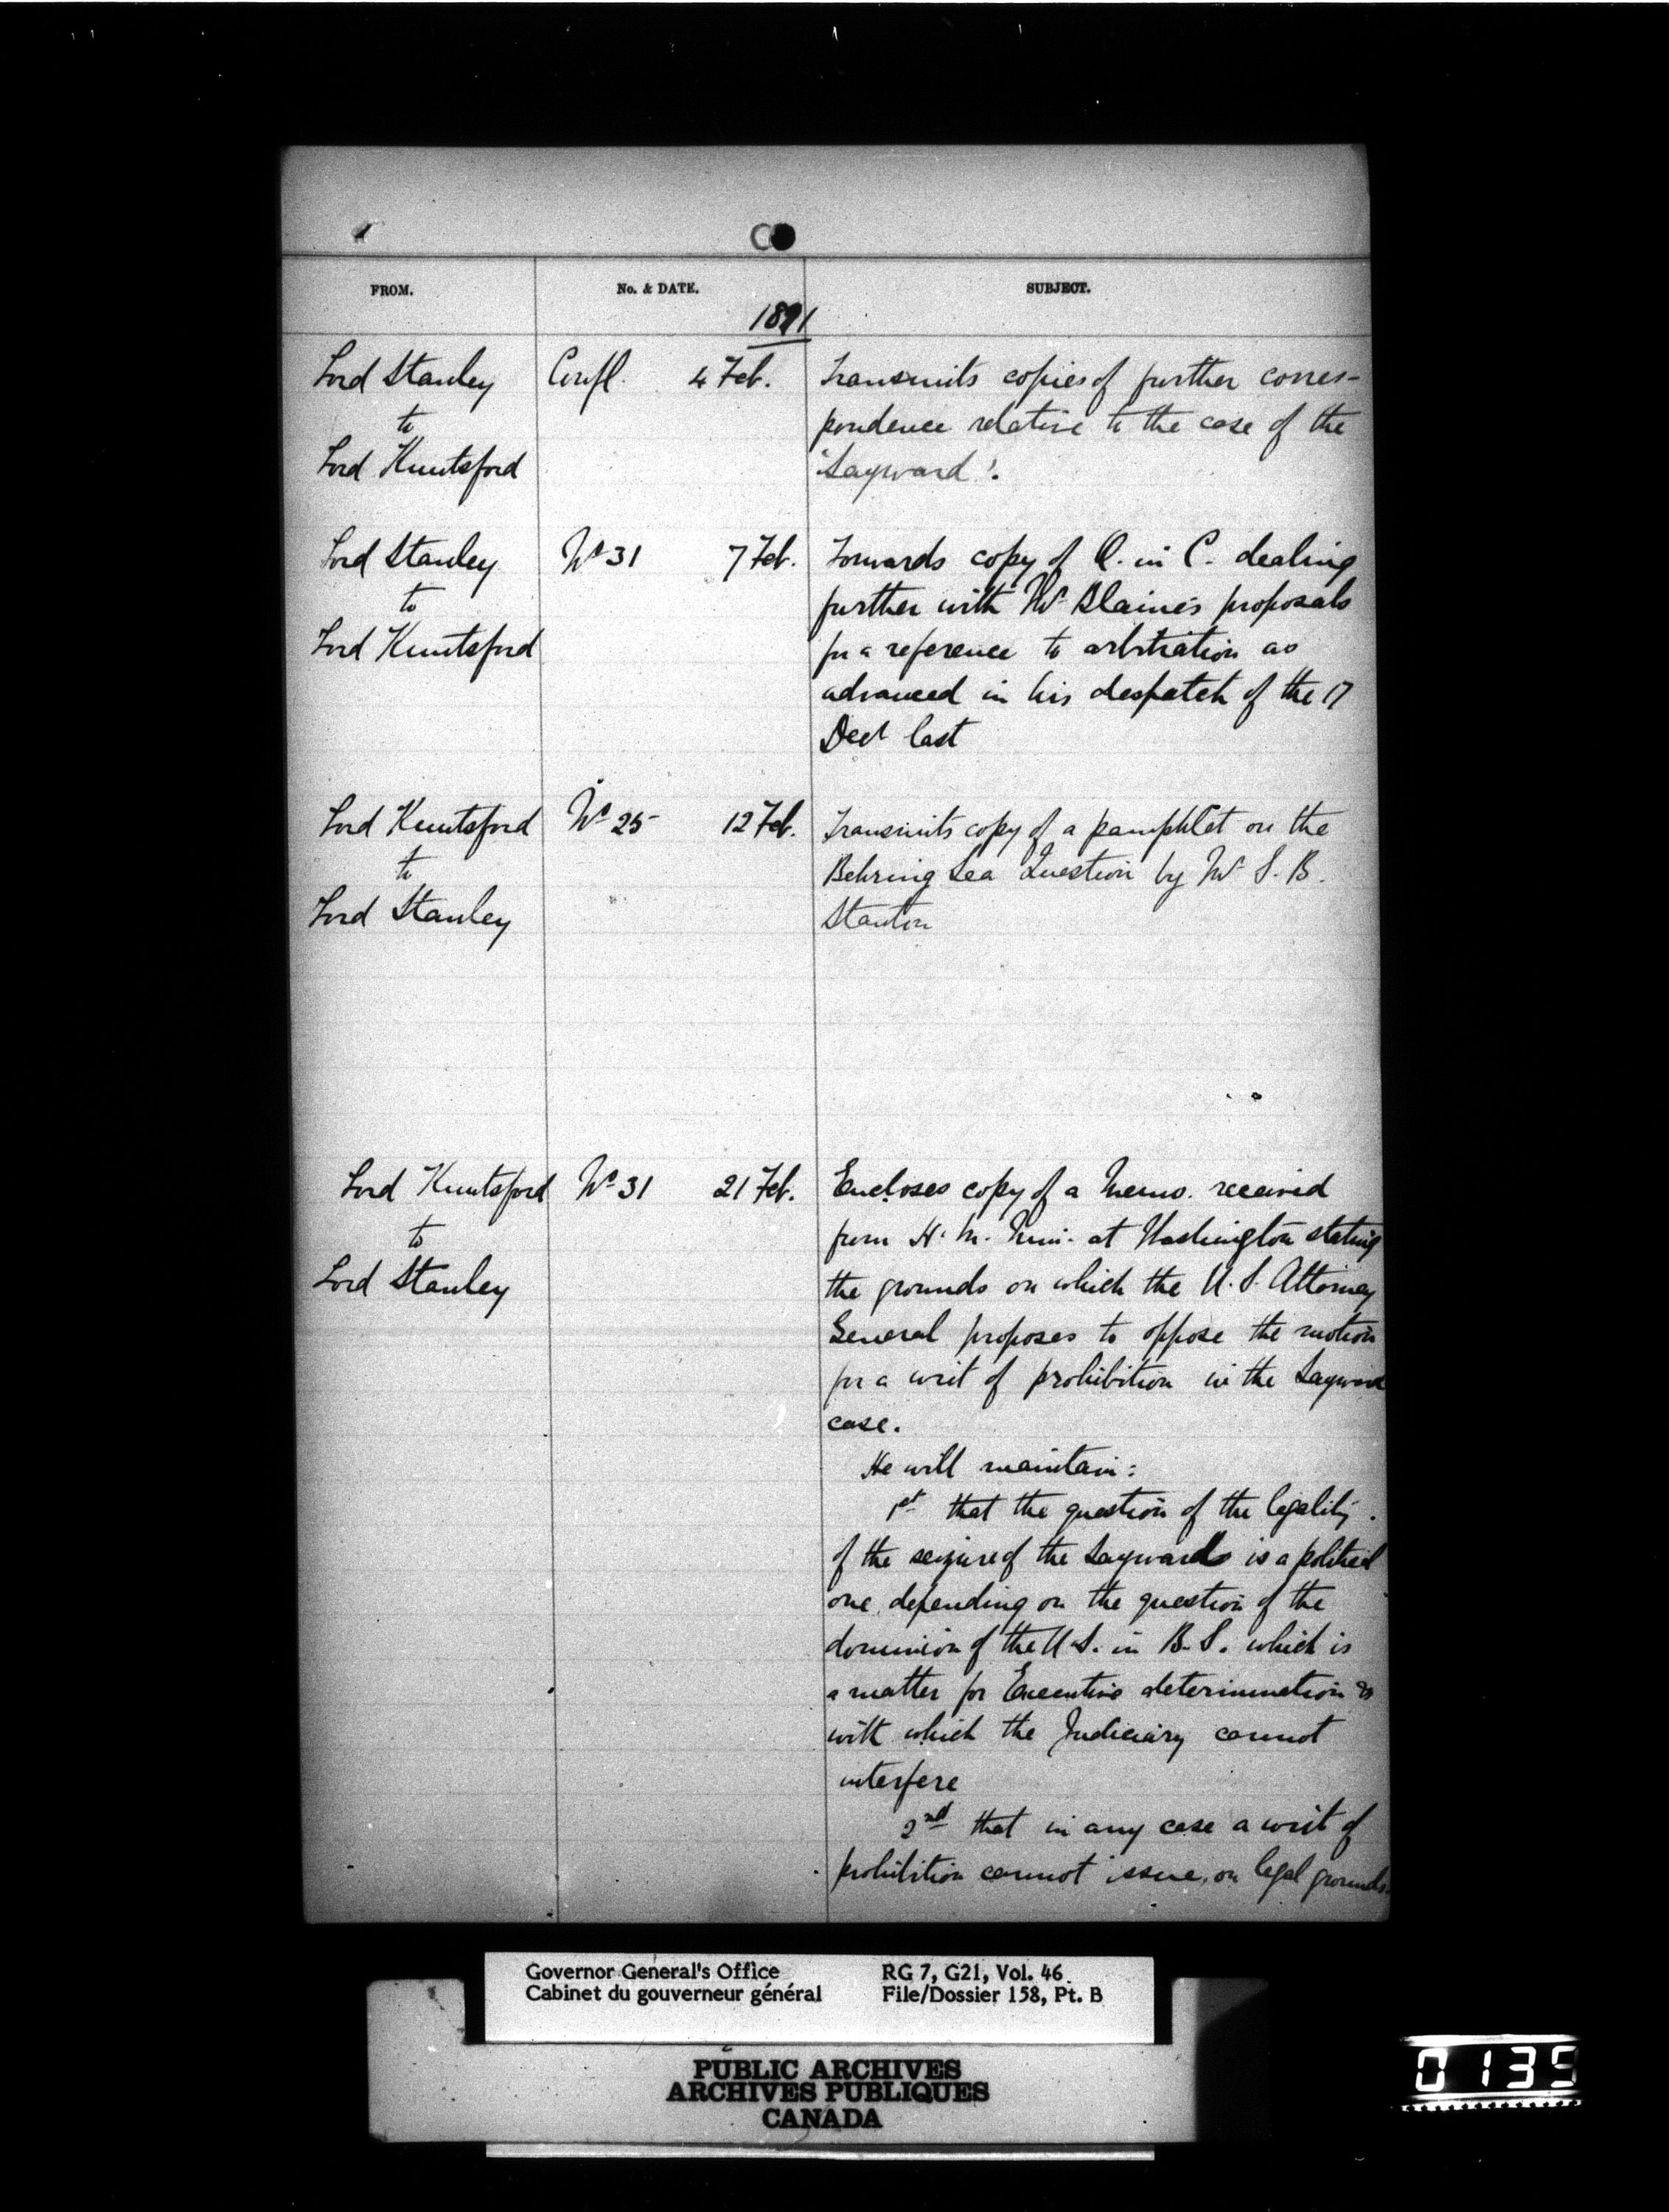 FROM. No. & DATE. SUBJECT.
1891
Lord Stanley Confl. 4 Feb. Transmits copies of further corres-
to pondence relative to the case of the
Lord Knutsford 'Sayward'.
Lord Stanley No 31 7 Feb. Forwards copy of O. in C. dealing
to further with Mr Blaine's proposals
Lord Knutsford for a reference to arbitration as
advanced in his despatch of the 17
Decr last
Lord Knutsford No 25 12 Feb. Transmits copy of a pamphlet on the
to Behring Sea Question by Mr S. B.
Lord Stanley Stanton
Lord Knutsford No 31 21 Feb. Encloses copy of a Memo. received
to from H. M. Min. at Washington stating
Lord Stanley the grounds on which the U. S. Attorney
General proposes to oppose the motion
for a writ of prohibition in the Sayward
case.
He will maintain:
1st that the question of the legality
of the seizure of the Sayward is a political
one, depending on the question of the
dominion of the U.S. in B. S. which is
a matter for Executive determination &
with which the Judiciary cannot
interfere
2nd that in any case a writ of
prohibition cannot issue, on legal grounds.
Governor General's Office RG 7, G21, Vol. 46
Cabinet du gouverneur général File/Dossier 158, Pt. B
PUBLIC ARCHIVES
ARCHIVES PUBLIQUES
CANADA
0135